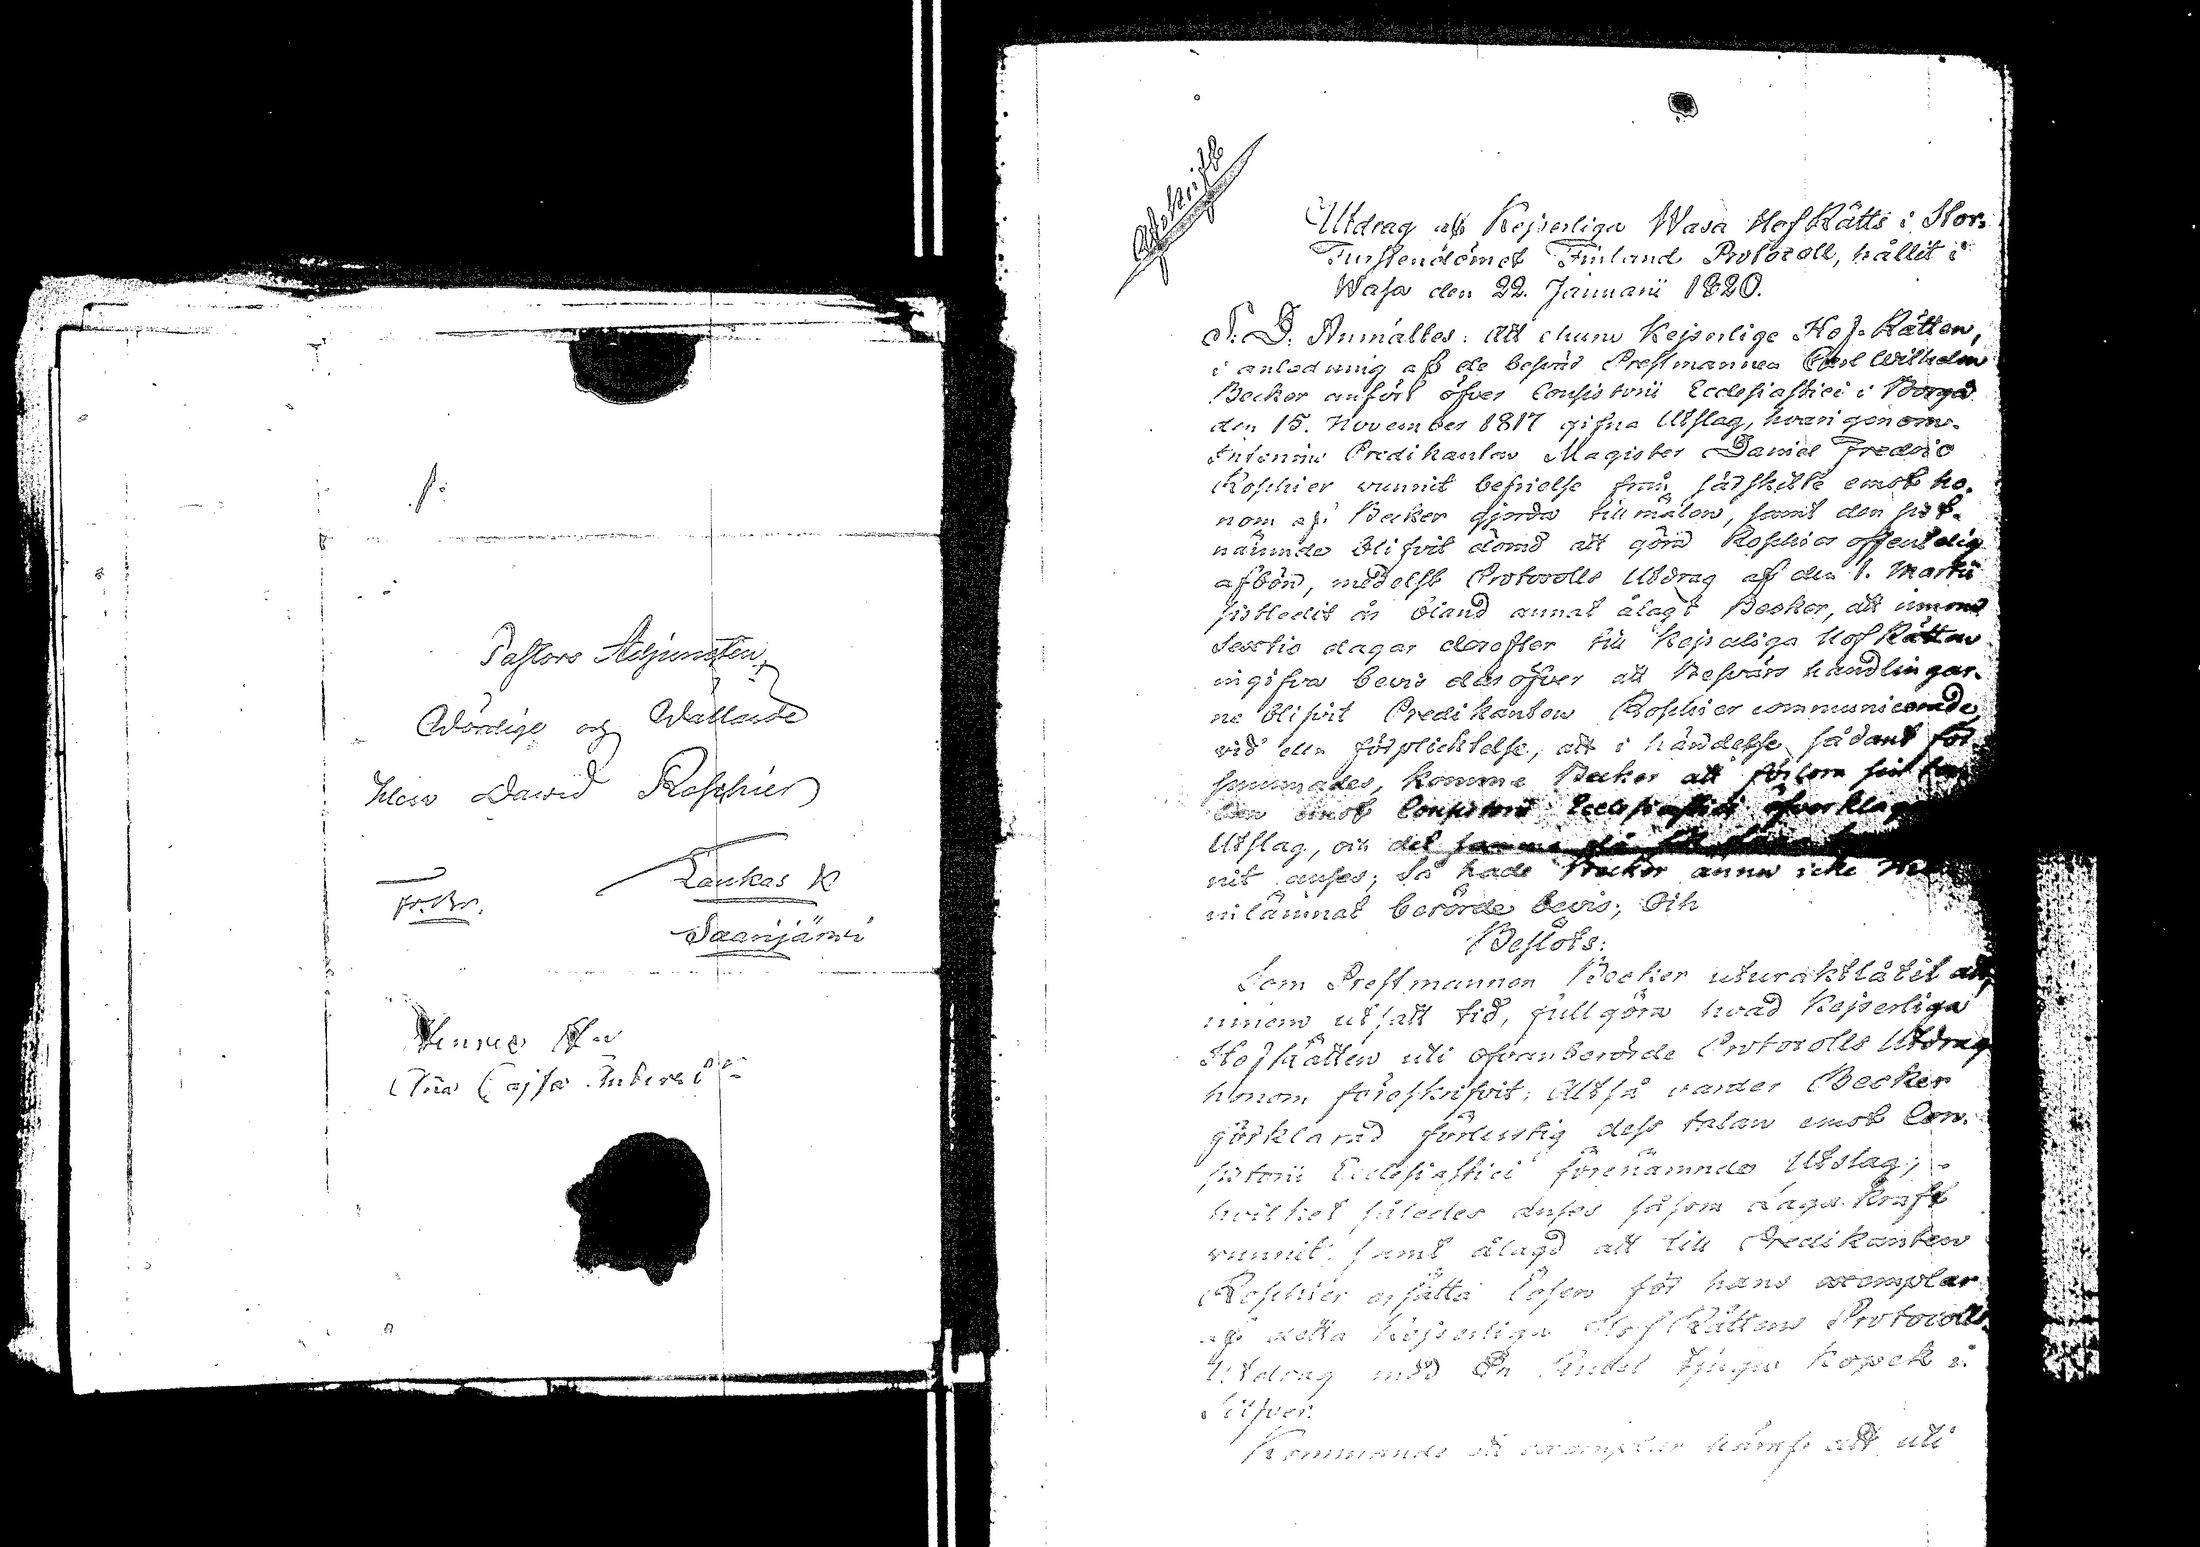 Pastors Adjuncten
Wördige och Wällärde
Herr David Roschier
fr. Br.
Laukas K
Saarijärvi
Afskrift
Utdrag af Kejserliga Wasa HofRätts i Stor-
Furstendömet Finland Protocoll, hållit i
Wasa den 22. Januarii 1820.
S. D. Anmältes: att ehuru Kejserlige Hof-Rätten,
i anledning af de besvär Prestmannen Carl Wilhelm
Becker anfört öfver Consistorii Ecclesiastici i Borgå
den 15. November 1817 gifna Utslag, hvarigenom
Predikanten Magister Daniel Fredric
Roschier vunnit befrielse från särskilte emot ho-
nom af Becker gjorda tillmälen, samt den sist-
nämnde blifvit dömd att göra Roschier offentelig
afbön, medelst Protocolls Utdrag af den 1. Martii
sistledit år bland annat ålagt Becker, att innom
Sextio dagar derefter till Kejserliga HofRätten
ingifva bevis deröfver att Besvärs handlingar-
ne blifvit Predikanten Roschier communicerade,
vid den förplichtelse, att i händelse sådant för-
summades, komme Becker att förlora sin ta-
lan emot Consistorii Ecclesiastici öfverklaga
Utslag, och det samma
nit anses; Så hade Becker ännu icke
inlämnat berörde bevis; Och
Beslöts:
Som Prestmannen Becker uturaktlåtit att
innom utsatt tid, fullgöra hvad Kejserliga
HofRätten uti ofvanberörde Protocolls Utdrag
honom föreskrifvit; Altså varder Becker
förklarad förlustig dess talan emot Con-
sistorii Ecclesiastici förenämnde Utslag;
hvilket således anses såsom Laga kraft
vunnit: samt ålagd att till Predikanten
Roschier ersätta lösen för hans exemplar
af detta Kejserliga HofRättens Protocolls
Utdrag med En Rubel tjugu Kopek i
Silfver.
Kommande ett exemplar häraf att uti